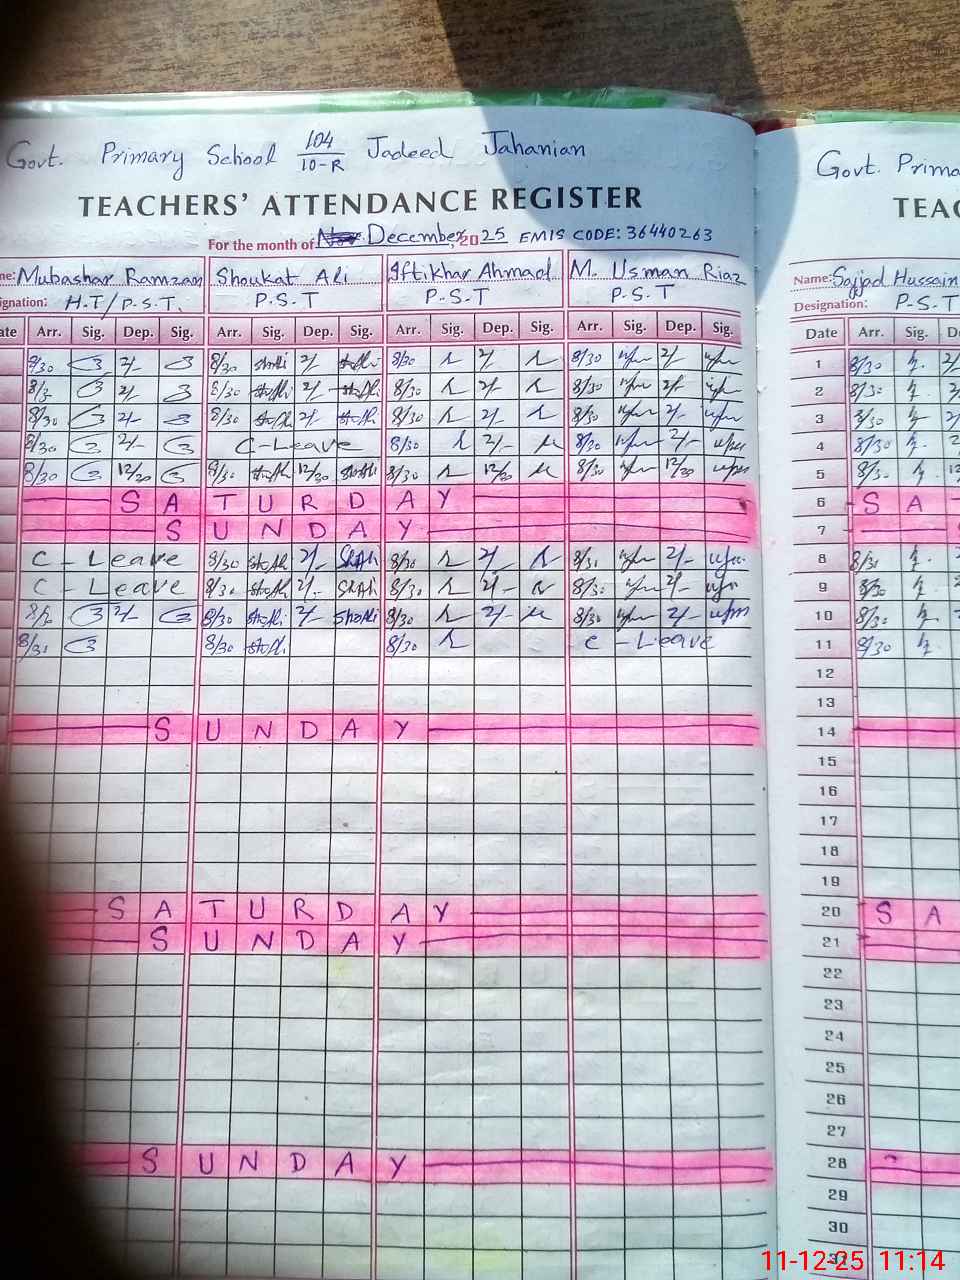 Govt. Primary School 104/10-R Jadeed Jahanian
TEACHERS' ATTENDANCE REGISTER
For the month of December, 2025 EMIS CODE: 36440263
me: Mubashar Ramzan Shoukat Ali Iftikhar Ahmad M. Usman Riaz
signation: H.T/P.S.T. P.S.T P.S.T P.S.T
ate Arr. Sig. Dep. Sig. Arr. Sig. Dep. Sig. Arr. Sig. Dep. Sig. Arr. Sig. Dep. Sig.
8/30 2/ 8/30 2/ 8/30 2/ 8/30 2/
8/3 2/ 8/30 2/ 8/30 2/ 8/30 2/
8/30 2/- 8/30 2/- 8/30 2/- 8/30 2/-
8/30 2/- C-Leave 8/30 2/- 8/30 2/-
8/30 12/30 8/30 12/30 8/30 12/30 8/30 12/30
SATURDAY
SUNDAY
C - Leave 8/30 2/- 8/30 2/- 8/30 2/-
C - Leave 8/30 2/- 8/30 2/- 8/30 2/-
8/30 2/- 8/30 2/- 8/30 2/- 8/30 2/-
8/30 8/30 8/30 C - Leave
SUNDAY
SATURDAY
SUNDAY
SUNDAY
Govt. Prima
TEAC
Name: Sajjad Hussain
Designation: P.S.T
Date Arr. Sig. De
1 8/30 2/
2 8/30
3 8/30
4 8/30
5 8/30
6 S A T
7
8 8/30
9 8/30
10 8/30
11 8/30
12
13
14
15
16
17
18
19
20 S A
21
22
23
24
25
26
27
28
29
30
31
11-12-25 11:14